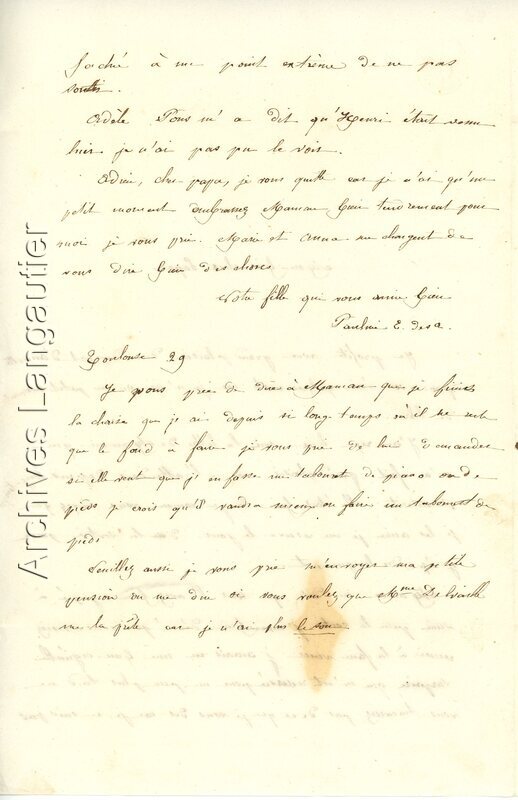 faché à un point extrème de ne pas
sortir.
Adèle Pons m'a dit qu'Henri était venu
hier je n'ai pas pu le voir.
Adieu, cher papa, je vous quitte car je n'ai qu'un
petit moment embrassez Maman bien tendrement pour
moi je vous prie. Marie et Anna me chargent de
vous dire bien des choses
Votre fille qui vous aime bien
Pauline E. de
Toulouse 29
Je vous prie de dire à Maman que je finis
la chaise que j'ai depuis si long temps où il ne met
que le fond à faire je vous prie de lui demander
si elle veut que j'en fasse un tabouret de piano ou de
pieds je crois qu'il vaudra mieux en faire un tabouret de
pieds
Veuillez aussi je vous prie m'envoyer ma petite
pension ou me dire si vous voulez que Mme De
me la prête car je n'ai plus le sou
Archives Langautier